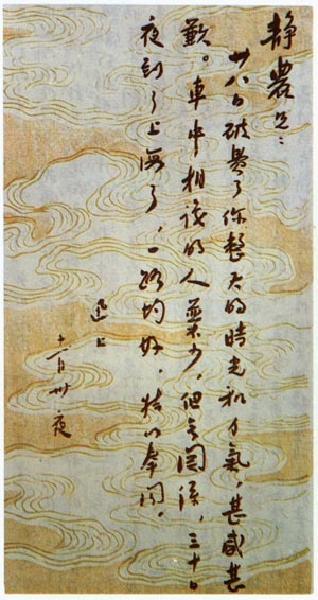 静農兄：
廿八日破費了你整天的時光和力氣，甚感甚
歉。車中相識的人並不少，但無関係，三十日
夜到了上海了，一路均好，特以奉聞。
迅上
十一月卅夜